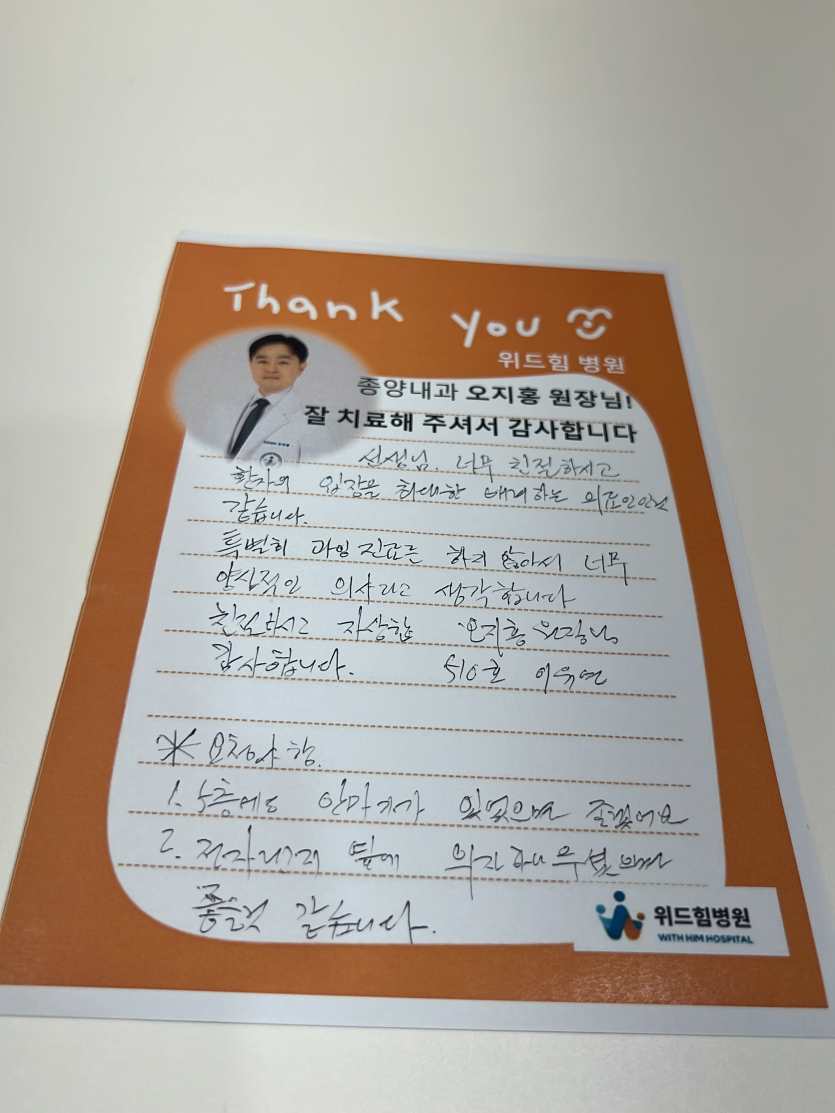 Thank you
위드힘 병원
종양내과 오지홍 원장님!
잘 치료해 주셔서 감사합니다
선생님. 너무 친절하시고
환자의 입장을 최대한 배려하는 의료인인것
같습니다.
특별히 과잉 진료를 하지 않아서 너무
양심적인 의사라고 생각합니다
친절하시고 자상한 오지홍 원장님
감사합니다. 510호
※ 요청사항.
1. 5층에도 안마기가 있었으면 좋겠어요
2. 전자렌지 옆에 의자 하나
좋을것 같습니다.
위드힘병원
WITH HIM HOSPITAL